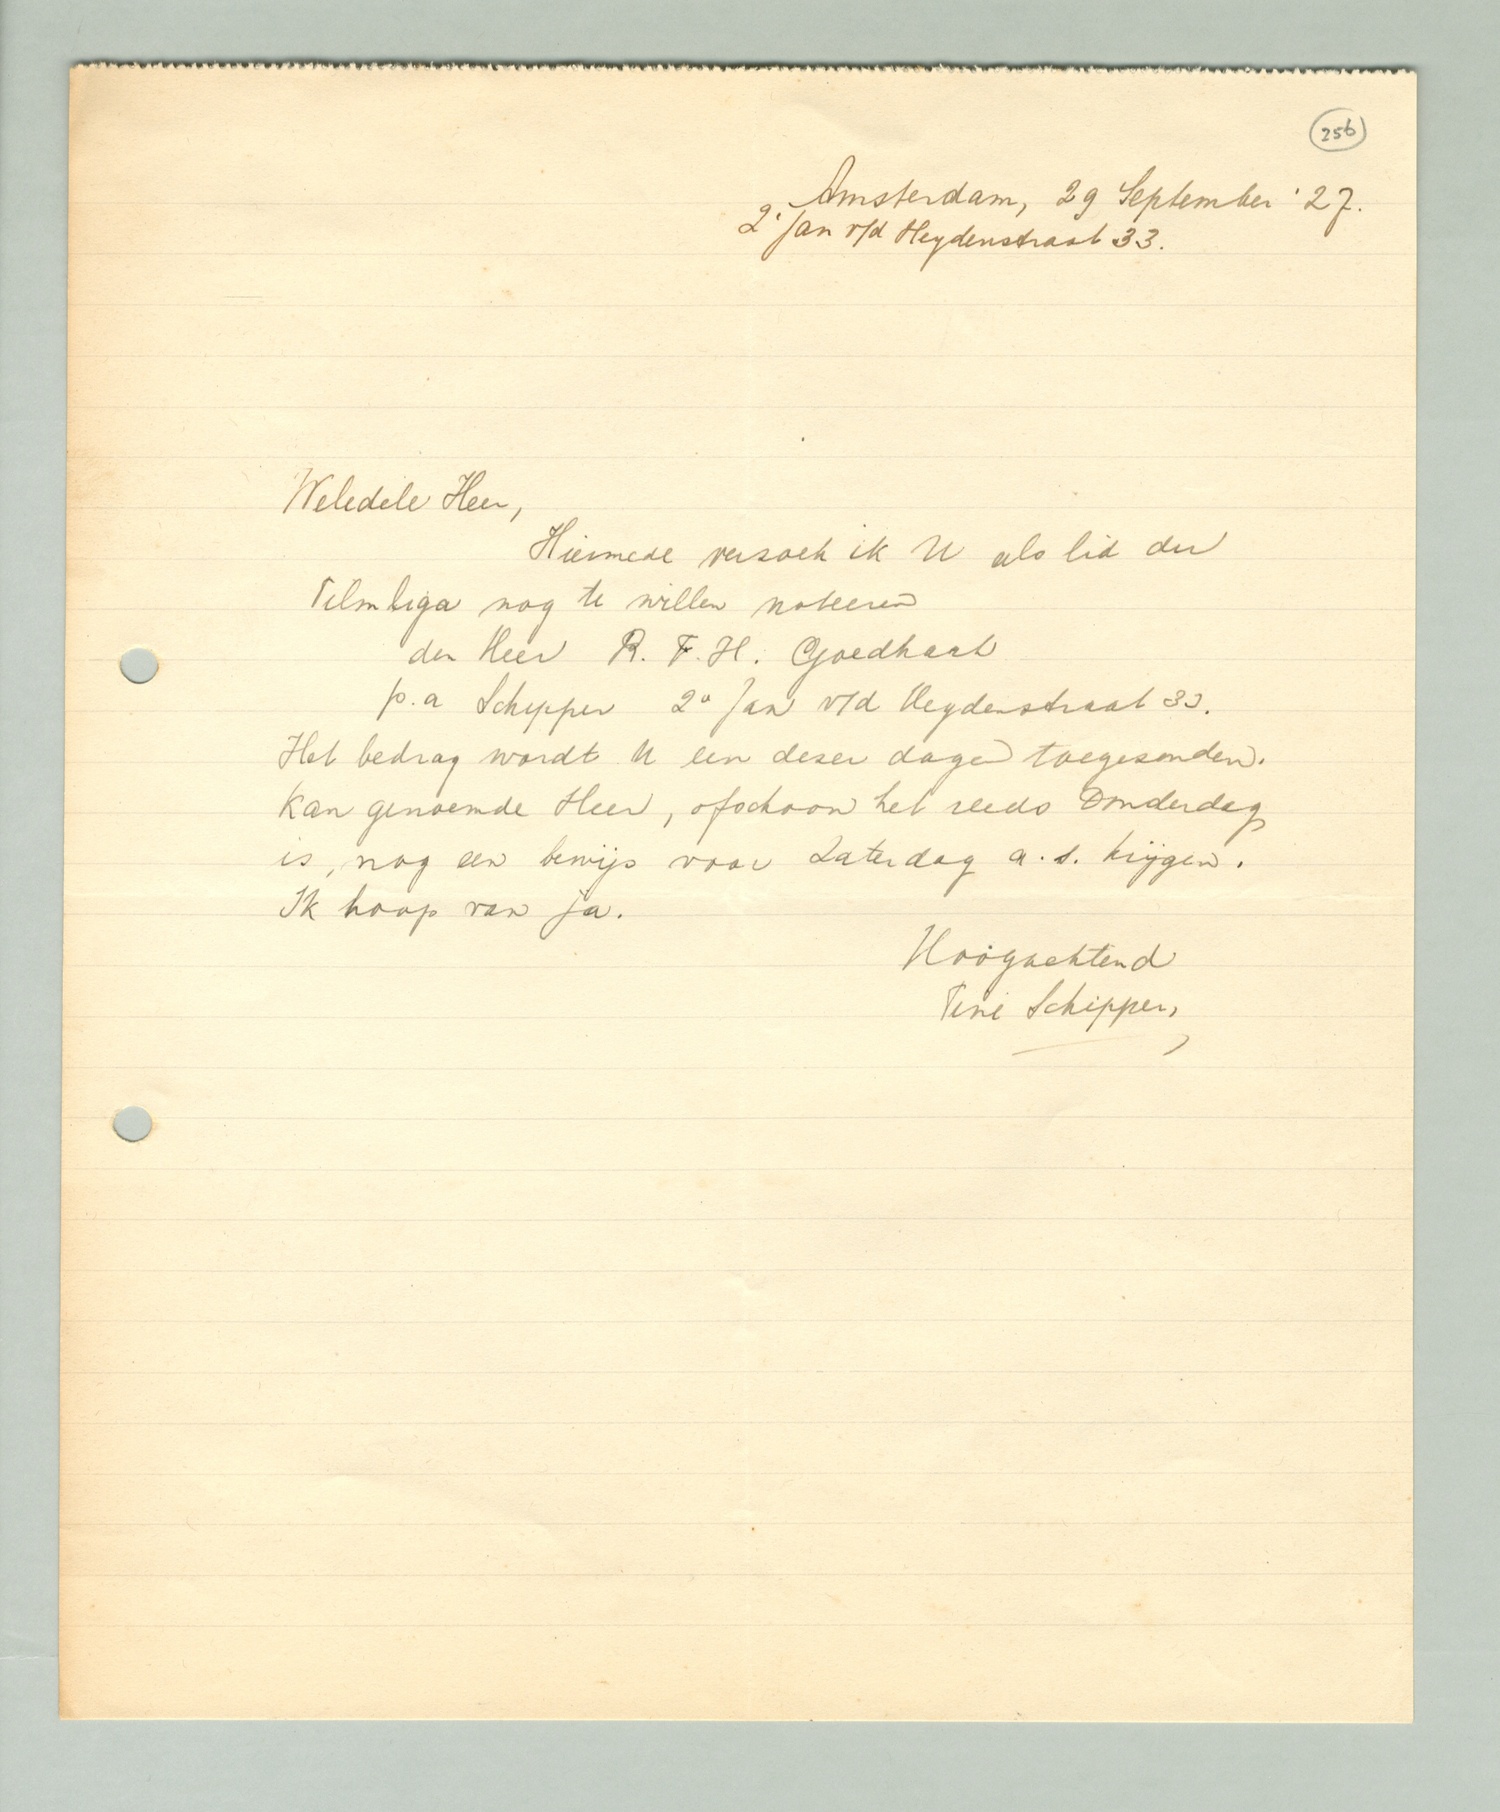 256
Amsterdam, 29 September '27.
2e Jan v/d Heydenstraat 33.
Weledele Heer,
Hiermede verzoek ik U als lid der
Filmliga nog te willen noteeren
den Heer R. F. H. Goedhart
p. a Schipper 2e Jan v/d Heydenstraat 33.
Het bedrag wordt U een dezer dagen toegezonden.
Kan genoemde Heer, ofschoon het reeds Donderdag
is, nog een bewijs voor Zaterdag a. s. krijgen.
Ik hoop van ja.
Hoogachtend
Tini Schipper,